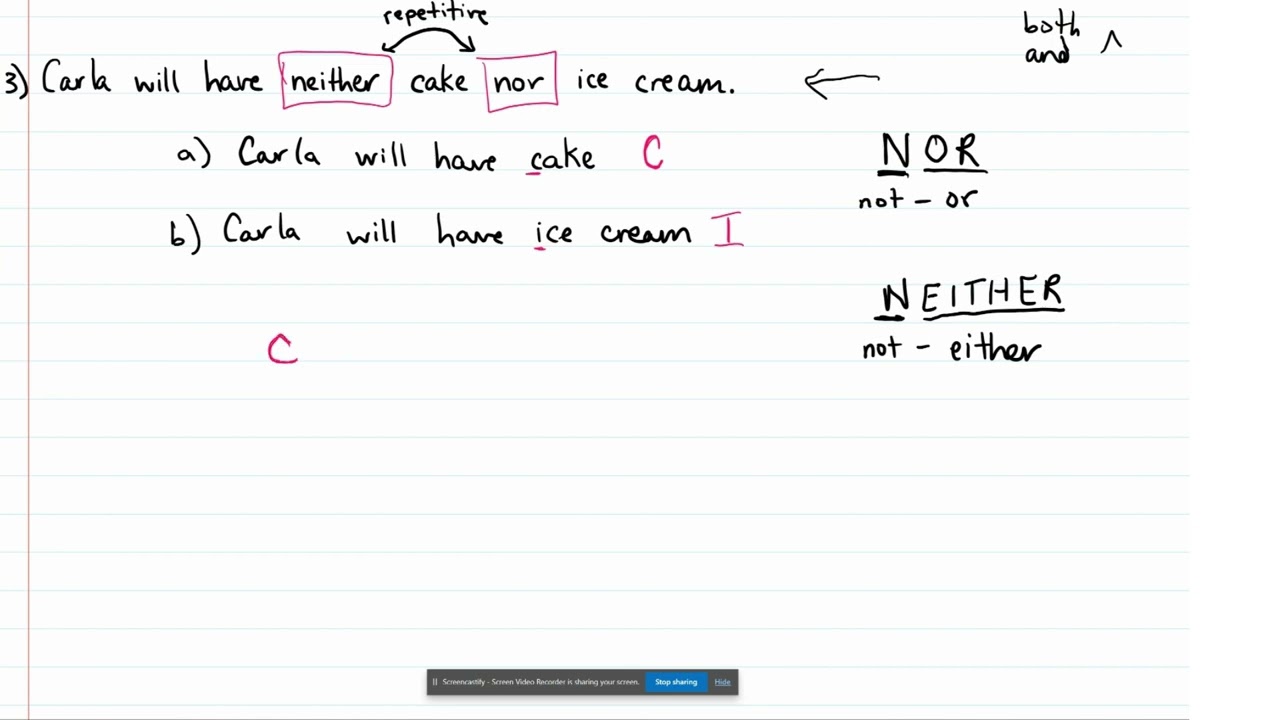 repetitive
both
and ∧
3) Carla will have neither cake nor ice cream. ←
a) Carla will have cake C
NOR
not - or
b) Carla will have ice cream I
NEITHER
not - either
C
Screencastify - Screen Video Recorder is sharing your screen. Stop sharing Hide